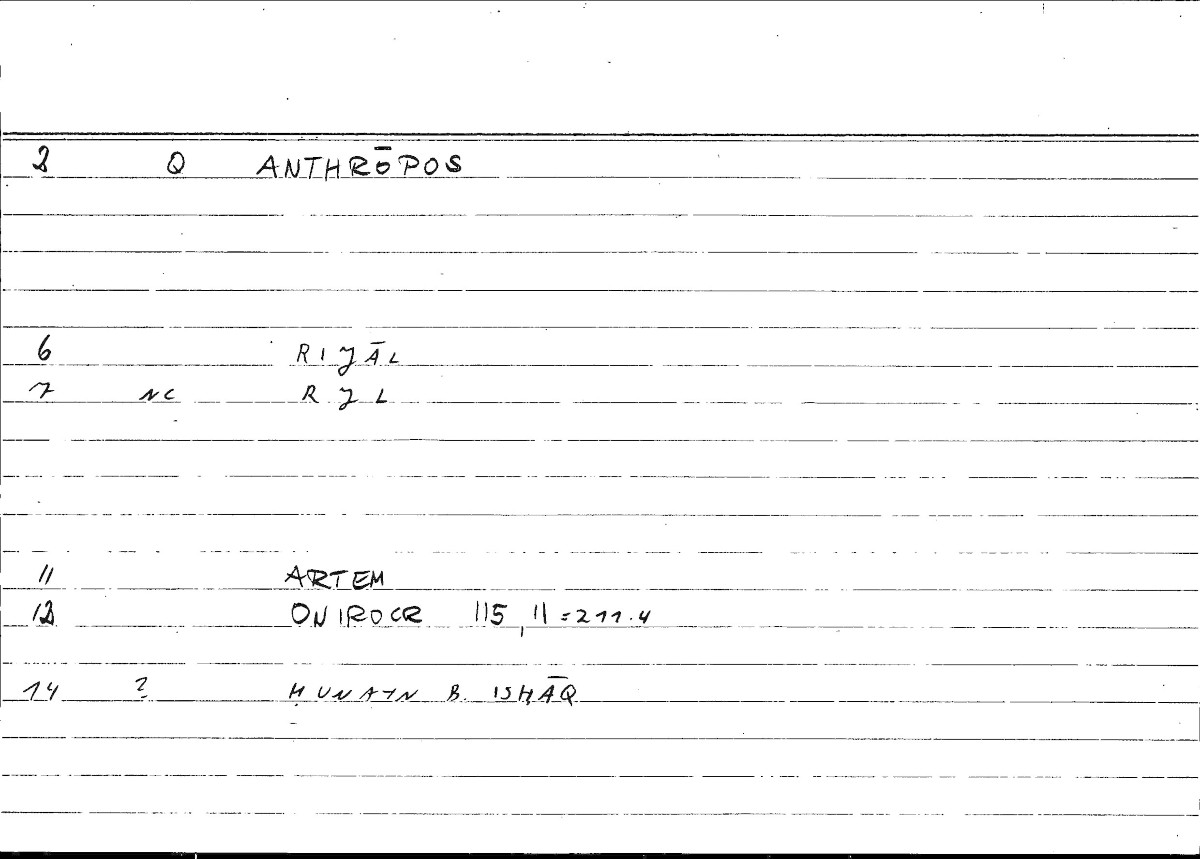 2 Q ANTHRŌPOS
6 RIJĀL
7 NC RJL
11 ARTEM
12 ONIROCR 115,11=211.4
14 ? ḤUNAYN B. ISḤĀQ